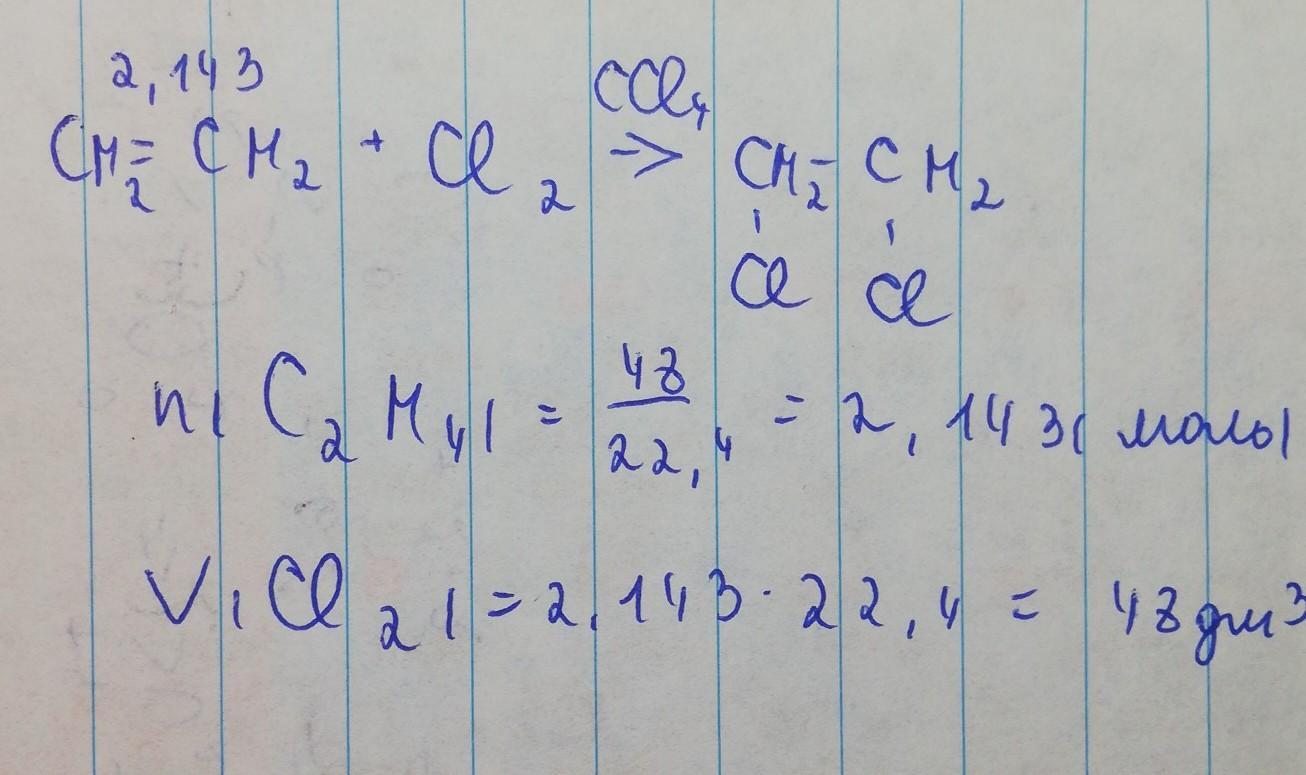 2,143
CH₂=CH₂ + Cl₂ → CH₂-CH₂
CCl₄
Cl Cl
n(C₂H₄) = 48/22,4 = 2,143(моль)
V(Cl₂) = 2,143·22,4 = 48дм³